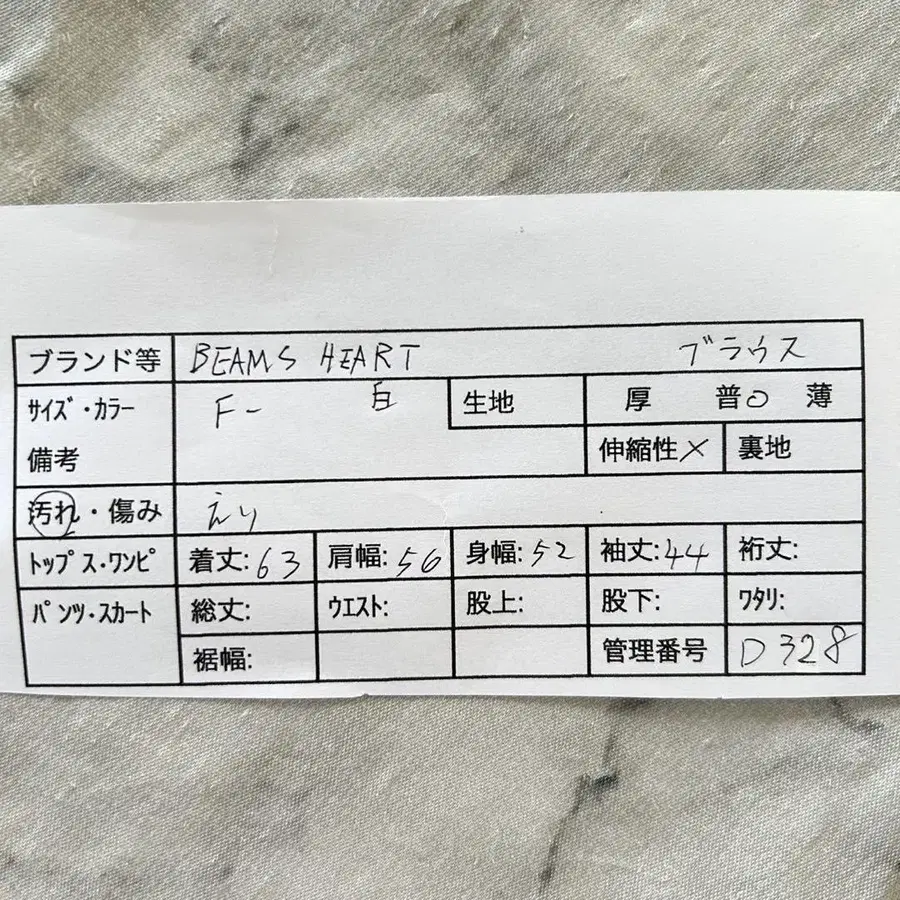 ブランド等 BEAMS HEART ブラウス
サイズ・カラー F- 白 生地 厚 普○ 薄
備考 伸縮性× 裏地
汚れ・傷み えり
トップス・ワンピ 着丈:63 肩幅:56 身幅:52 袖丈:44 裄丈:
パンツ・スカート 総丈: ウエスト: 股上: 股下: ワタリ:
裾幅: 管理番号 D328